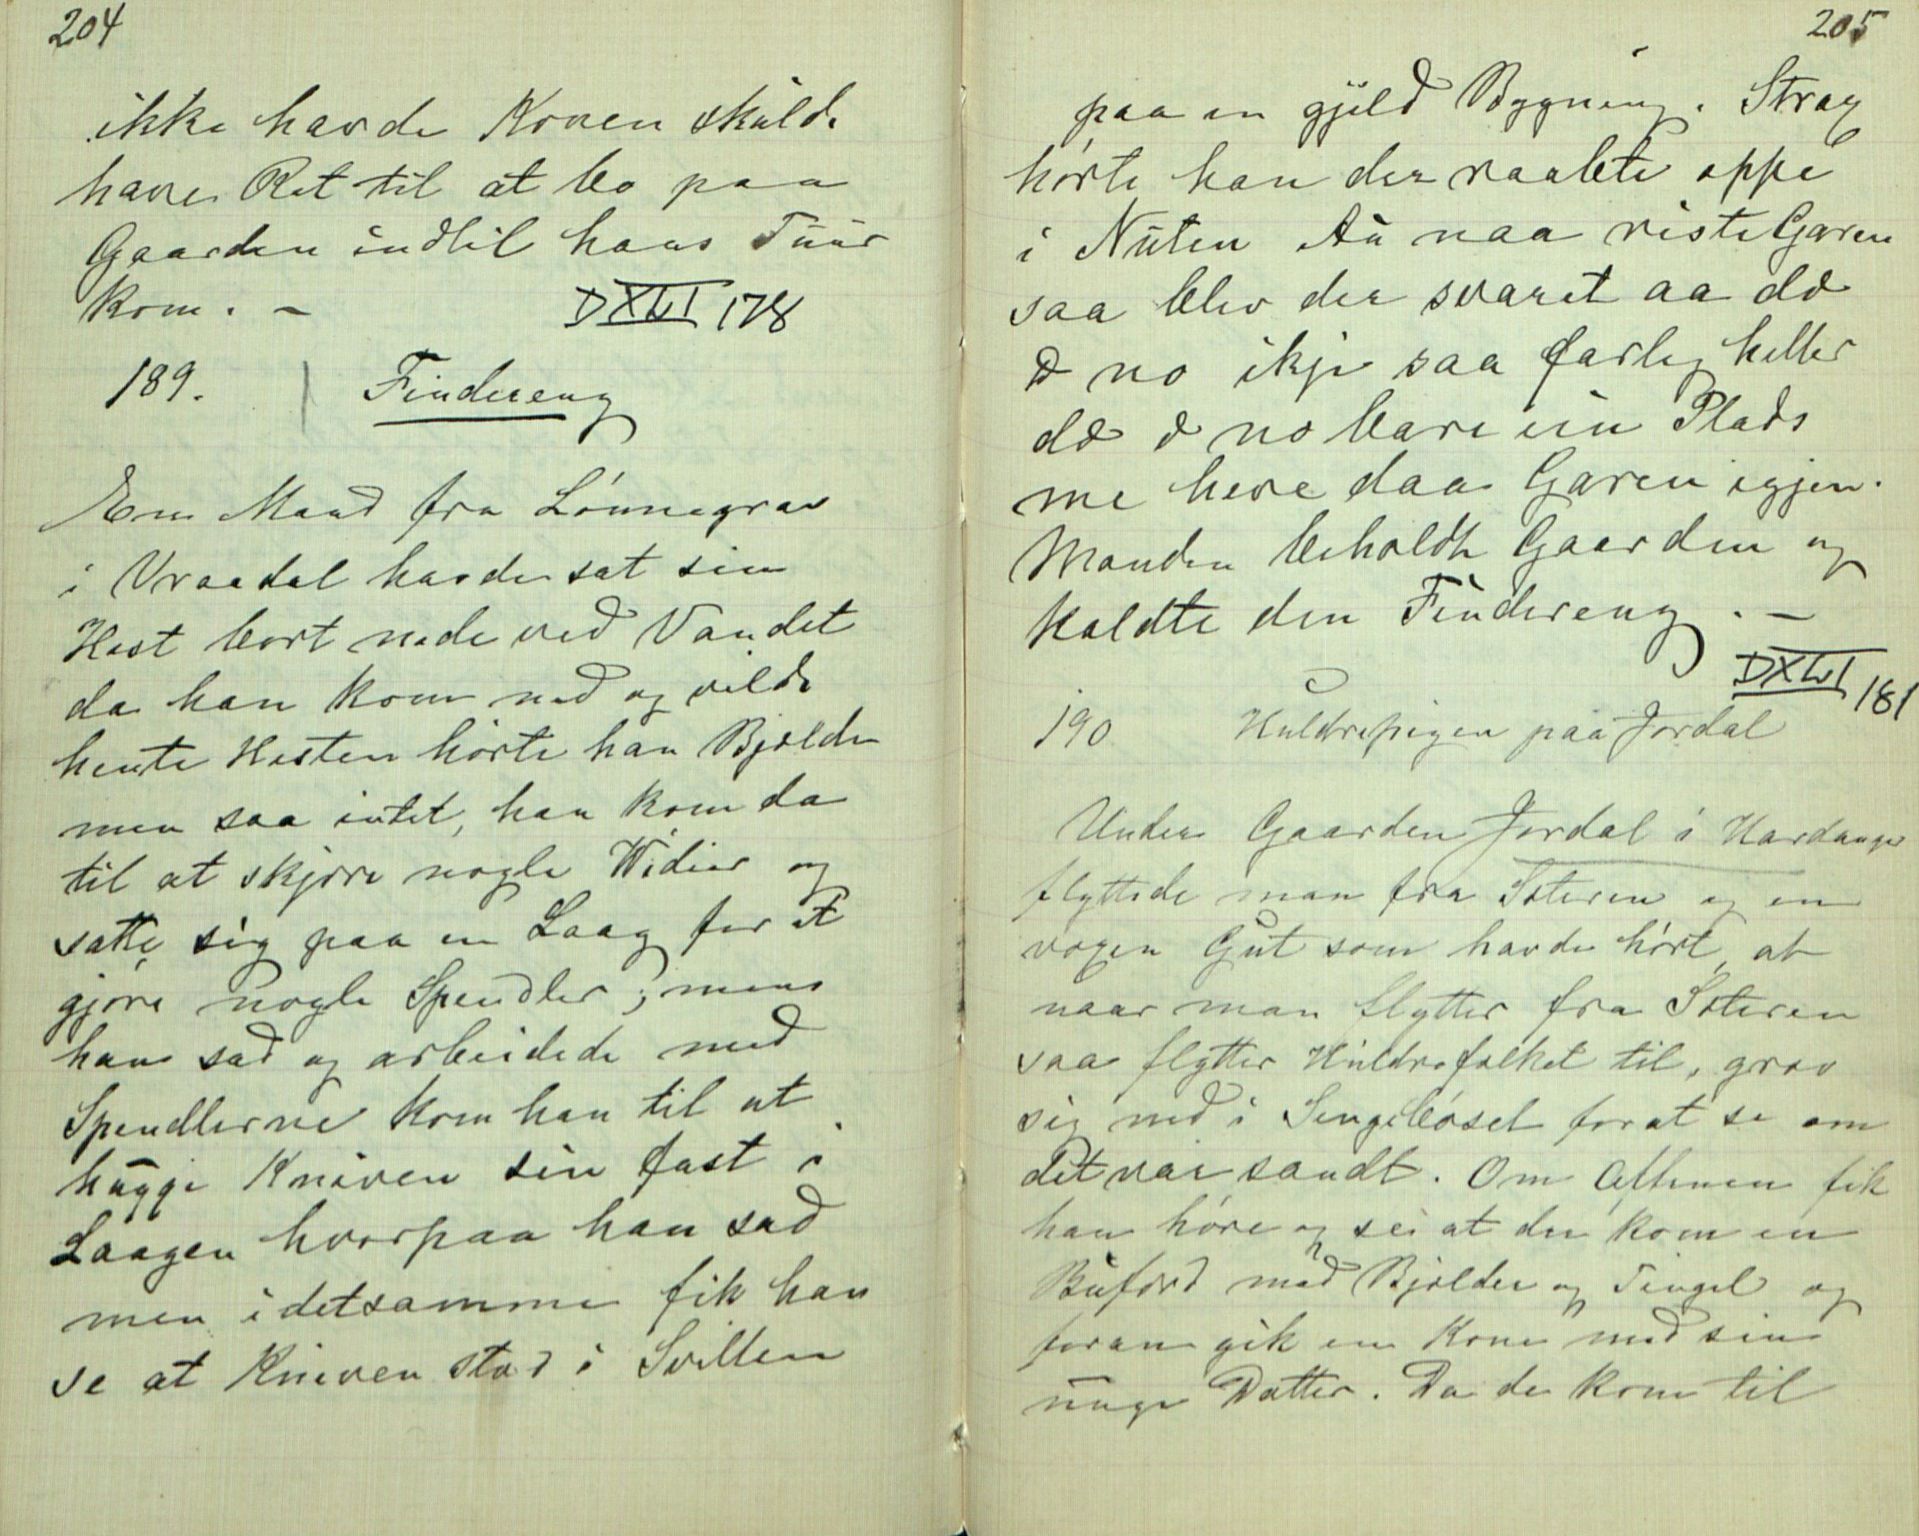 204
ikke havde Konen skulde
have Ret til at bo paa
Gaarden indtil hans Tuur
kom. –
DXLVI 178
189. Findereng
Een Mand fra Lønnegrav
i Vraadal havde sat sin
Hest bort nede ved Vandet
da han kom ned og vilde
hente Hesten hørte han Bjelden
men saa intet, han kom da
til at skjære nogle Vidier og
satte sig paa en Laag for at
gjøre nogle Spendler; mens
han sad og arbeidede med
Spendlerne kom han til at
hugge Kniven sin fast i
Laagen hvorpaa han sad
men i detsamme fik han
se at Kniven stod i Svillen
205
paa en gjild Bygning. Strax
hørte han der raabte oppe
i Nuten Au naa miste Garen
saa blev der svaret aa dæ
æ no ikje saa farleg heller
dæ æ no bare ein Plads
me heve daa Garen igjen.
Manden beholdt Gaarden og
kaldte den Findereng. –
DXLVI 181
190 Huldrepigen paa Jordal
Under Gaarden Jordal i Hardanger
flyttede man fra Støteren og en
voxen Gut som havde hørt, at
naar man flytter fra Støteren
saa flytter Huldrefolket til, grov
sig ned i Sengebosset for at se om
det var sandt. Om Aftenen fik
han høre og se at der kom en
Buferd med Bjelder og Tingel og
foran gik en Kone med sin
unge Datter. Da de kom til